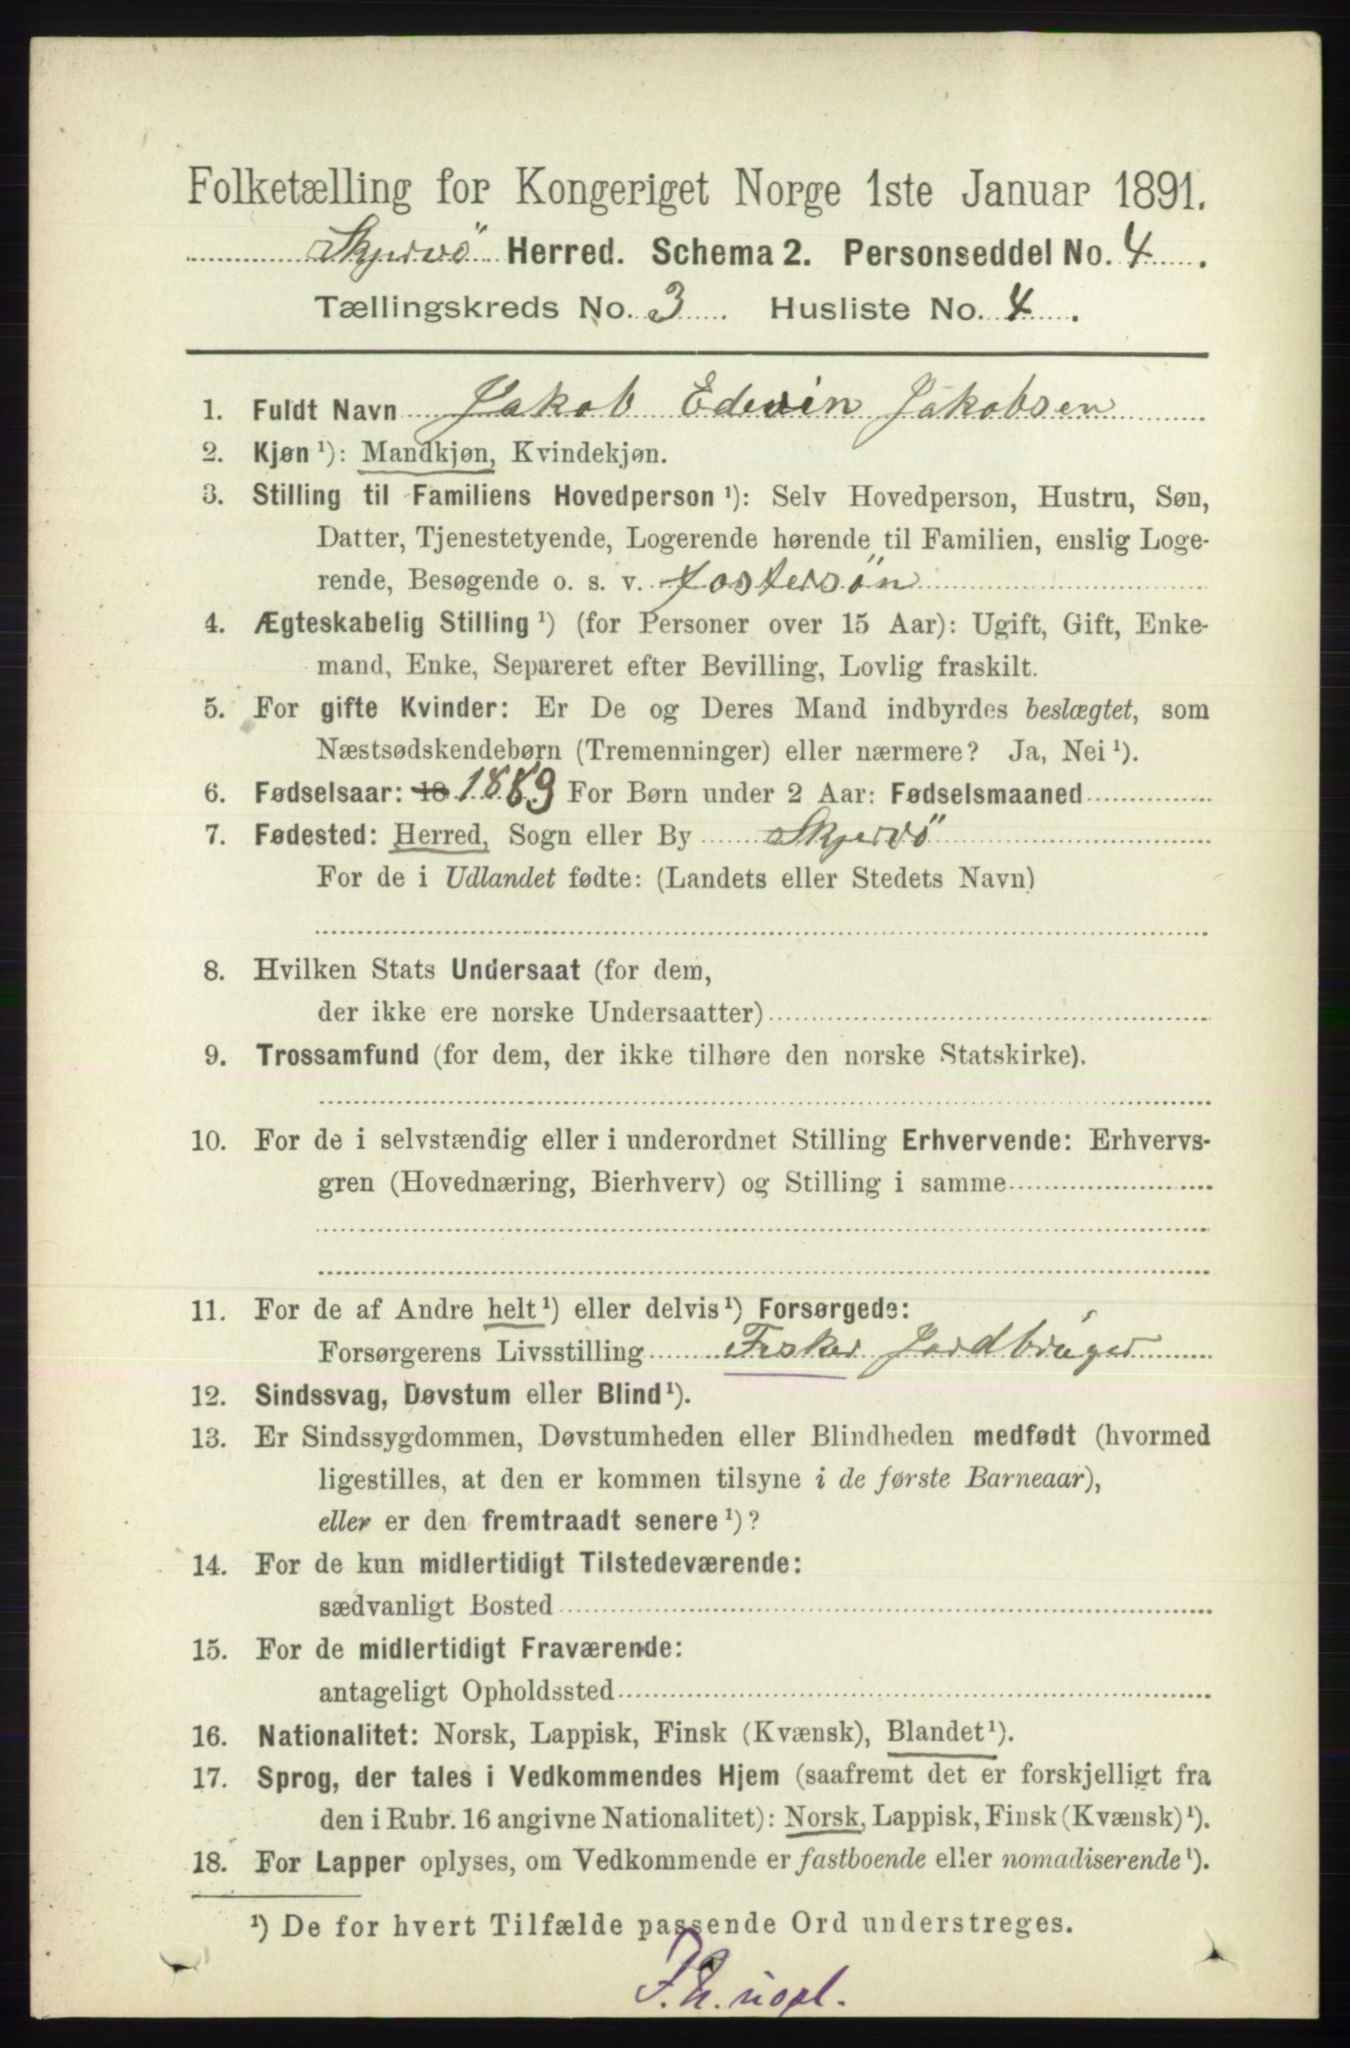 Folketælling for Kongeriget Norge 1ste Januar 1891.
Skjervö Herred. Schema 2. Personseddel No. 4.
Tællingskreds No. 3. Husliste No. 4.
1. Fuldt Navn Jakob Edevin Jakobsen
2. Kjøn ¹): Mandkjøn, Kvindekjøn.
3. Stilling til Familiens Hovedperson ¹): Selv Hovedperson, Hustru, Søn,
Datter, Tjenestetyende, Logerende hørende til Familien, enslig Loge-
rende, Besøgende o. s. v. fostersøn
4. Ægteskabelig Stilling ¹) (for Personer over 15 Aar): Ugift, Gift, Enke-
mand, Enke, Separeret efter Bevilling, Lovlig fraskilt.
5. For gifte Kvinder: Er De og Deres Mand indbyrdes beslægtet, som
Næstsødskendebørn (Tremenninger) eller nærmere? Ja, Nei ¹).
6. Fødselsaar: 18 1889 For Børn under 2 Aar: Fødselsmaaned
7. Fødested: Herred, Sogn eller By Skjervö
For de i Udlandet fødte: (Landets eller Stedets Navn)
8. Hvilken Stats Undersaat (for dem,
der ikke ere norske Undersaatter)
9. Trossamfund (for dem, der ikke tilhøre den norske Statskirke).
10. For de i selvstændig eller i underordnet Stilling Erhvervende: Erhvervs-
gren (Hovednæring, Bierhverv) og Stilling i samme
11. For de af Andre helt ¹) eller delvis ¹) Forsørgede:
Forsørgerens Livsstilling Fisker Jordbruger
12. Sindssvag, Døvstum eller Blind ¹).
13. Er Sindssygdommen, Døvstumheden eller Blindheden medfødt (hvormed
ligestilles, at den er kommen tilsyne i de første Barneaar),
eller er den fremtraadt senere ¹)?
14. For de kun midlertidigt Tilstedeværende:
sædvanligt Bosted
15. For de midlertidigt Fraværende:
antageligt Opholdssted
16. Nationalitet: Norsk, Lappisk, Finsk (Kvænsk), Blandet ¹).
17. Sprog, der tales i Vedkommendes Hjem (saafremt det er forskjelligt fra
den i Rubr. 16 angivne Nationalitet): Norsk, Lappisk, Finsk (Kvænsk) ¹).
18. For Lapper oplyses, om Vedkommende er fastboende eller nomadiserende ¹).
¹) De for hvert Tilfælde passende Ord understreges.